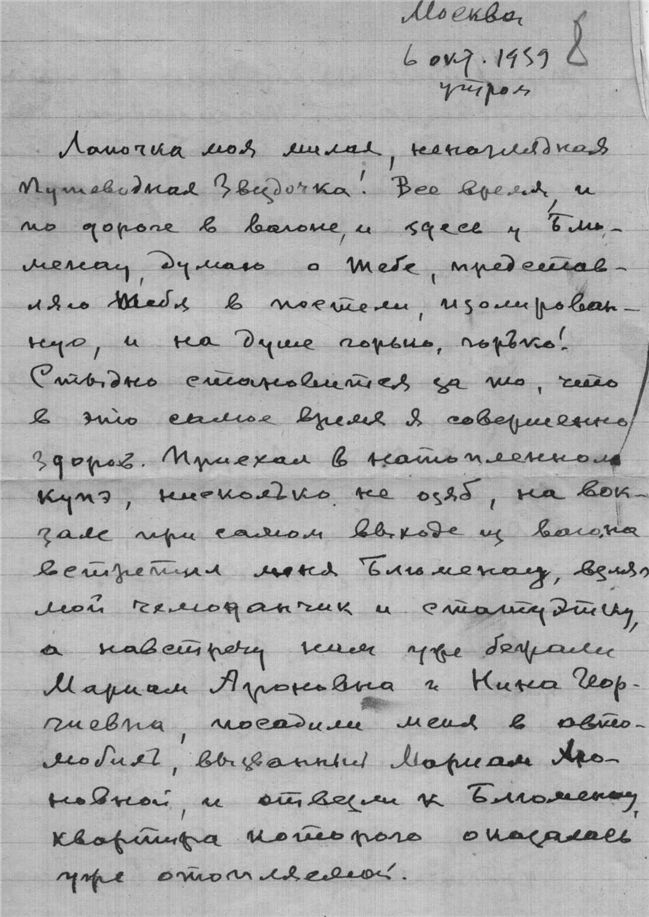 Москва
6 окт. 1959 8
утром
Лапочка моя милая, ненаглядная
Путеводная Звездочка! Все время, и
по дороге в вагоне, и здесь у Блю-
менау, думаю о Тебе, представ-
ляю Тебя в постели, изолирован-
ную, и на душе горько, горько!
Стыдно становится за то, что
в это самое время я совершенно
здоров. Приехал в натопленном
купэ, нисколько не озяб, на вок-
зале при самом выходе из вагона
встретил меня Блюменау, взял
мой чемоданчик и статуэтку,
а навстречу нам уже бежали
Мариам Ароновна и Нина Геор-
гиевна, посадили меня в авто-
мобиль, вызванный Мариам Аро-
новной, и отвезли к Блюменау,
квартира которого оказалась
уже отопляемой.